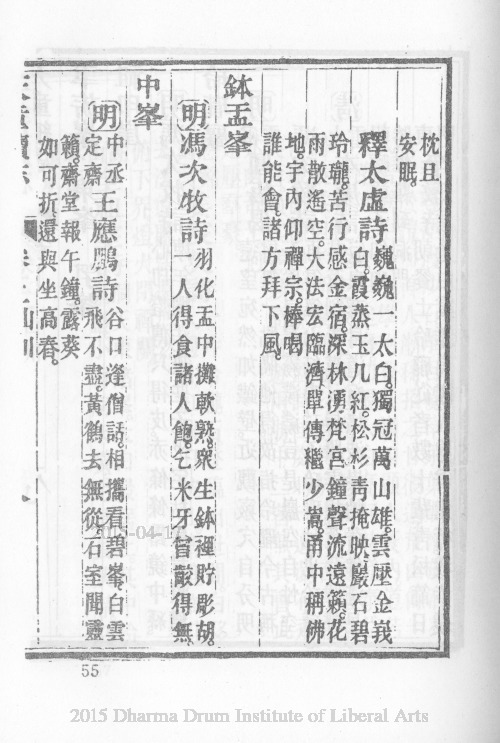 枕且
安眠。
釋太虛詩巍巍一太白。獨冠萬山雄。雲壓金峩
白。霞蒸玉几紅。松杉靑掩映。巖石碧
玲瓏。苦行感金宿。深林湧梵宮。鐘聲流遠籟。花
雨散遙空。大法宏臨濟。單傳繼少嵩。甬中稱佛
地。宇內仰禪宗。棒喝
誰能會。諸方拜下風。
鉢盂峯
明馮次牧詩羽化盂中攤飯熟。衆生鉢裡貯彫胡。
一人得食諸人飽。乞米牙曾齾得無。
中峯
明中丞王應鵬詩谷口逢僧話。相攜看碧峯。白雲
定齋飛不盡。黃鶴去無從。石室聞靈
籟。齋堂報午鐘。露葵
如可折。還與坐高舂。
55
2015 Dharma Drum Institute of Liberal Arts